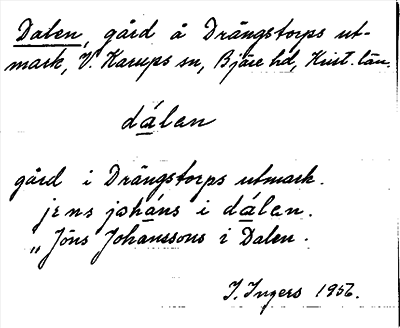 Dalen, gård å Drängstorps ut-
mark, V. Karups sn, Bjäre hd, Krist. län.
dálan
gård i Drängstorps utmark.
jens johàns i dálen.
„ Jöns Johanssons i Dalen.
I. Ingers 1956.